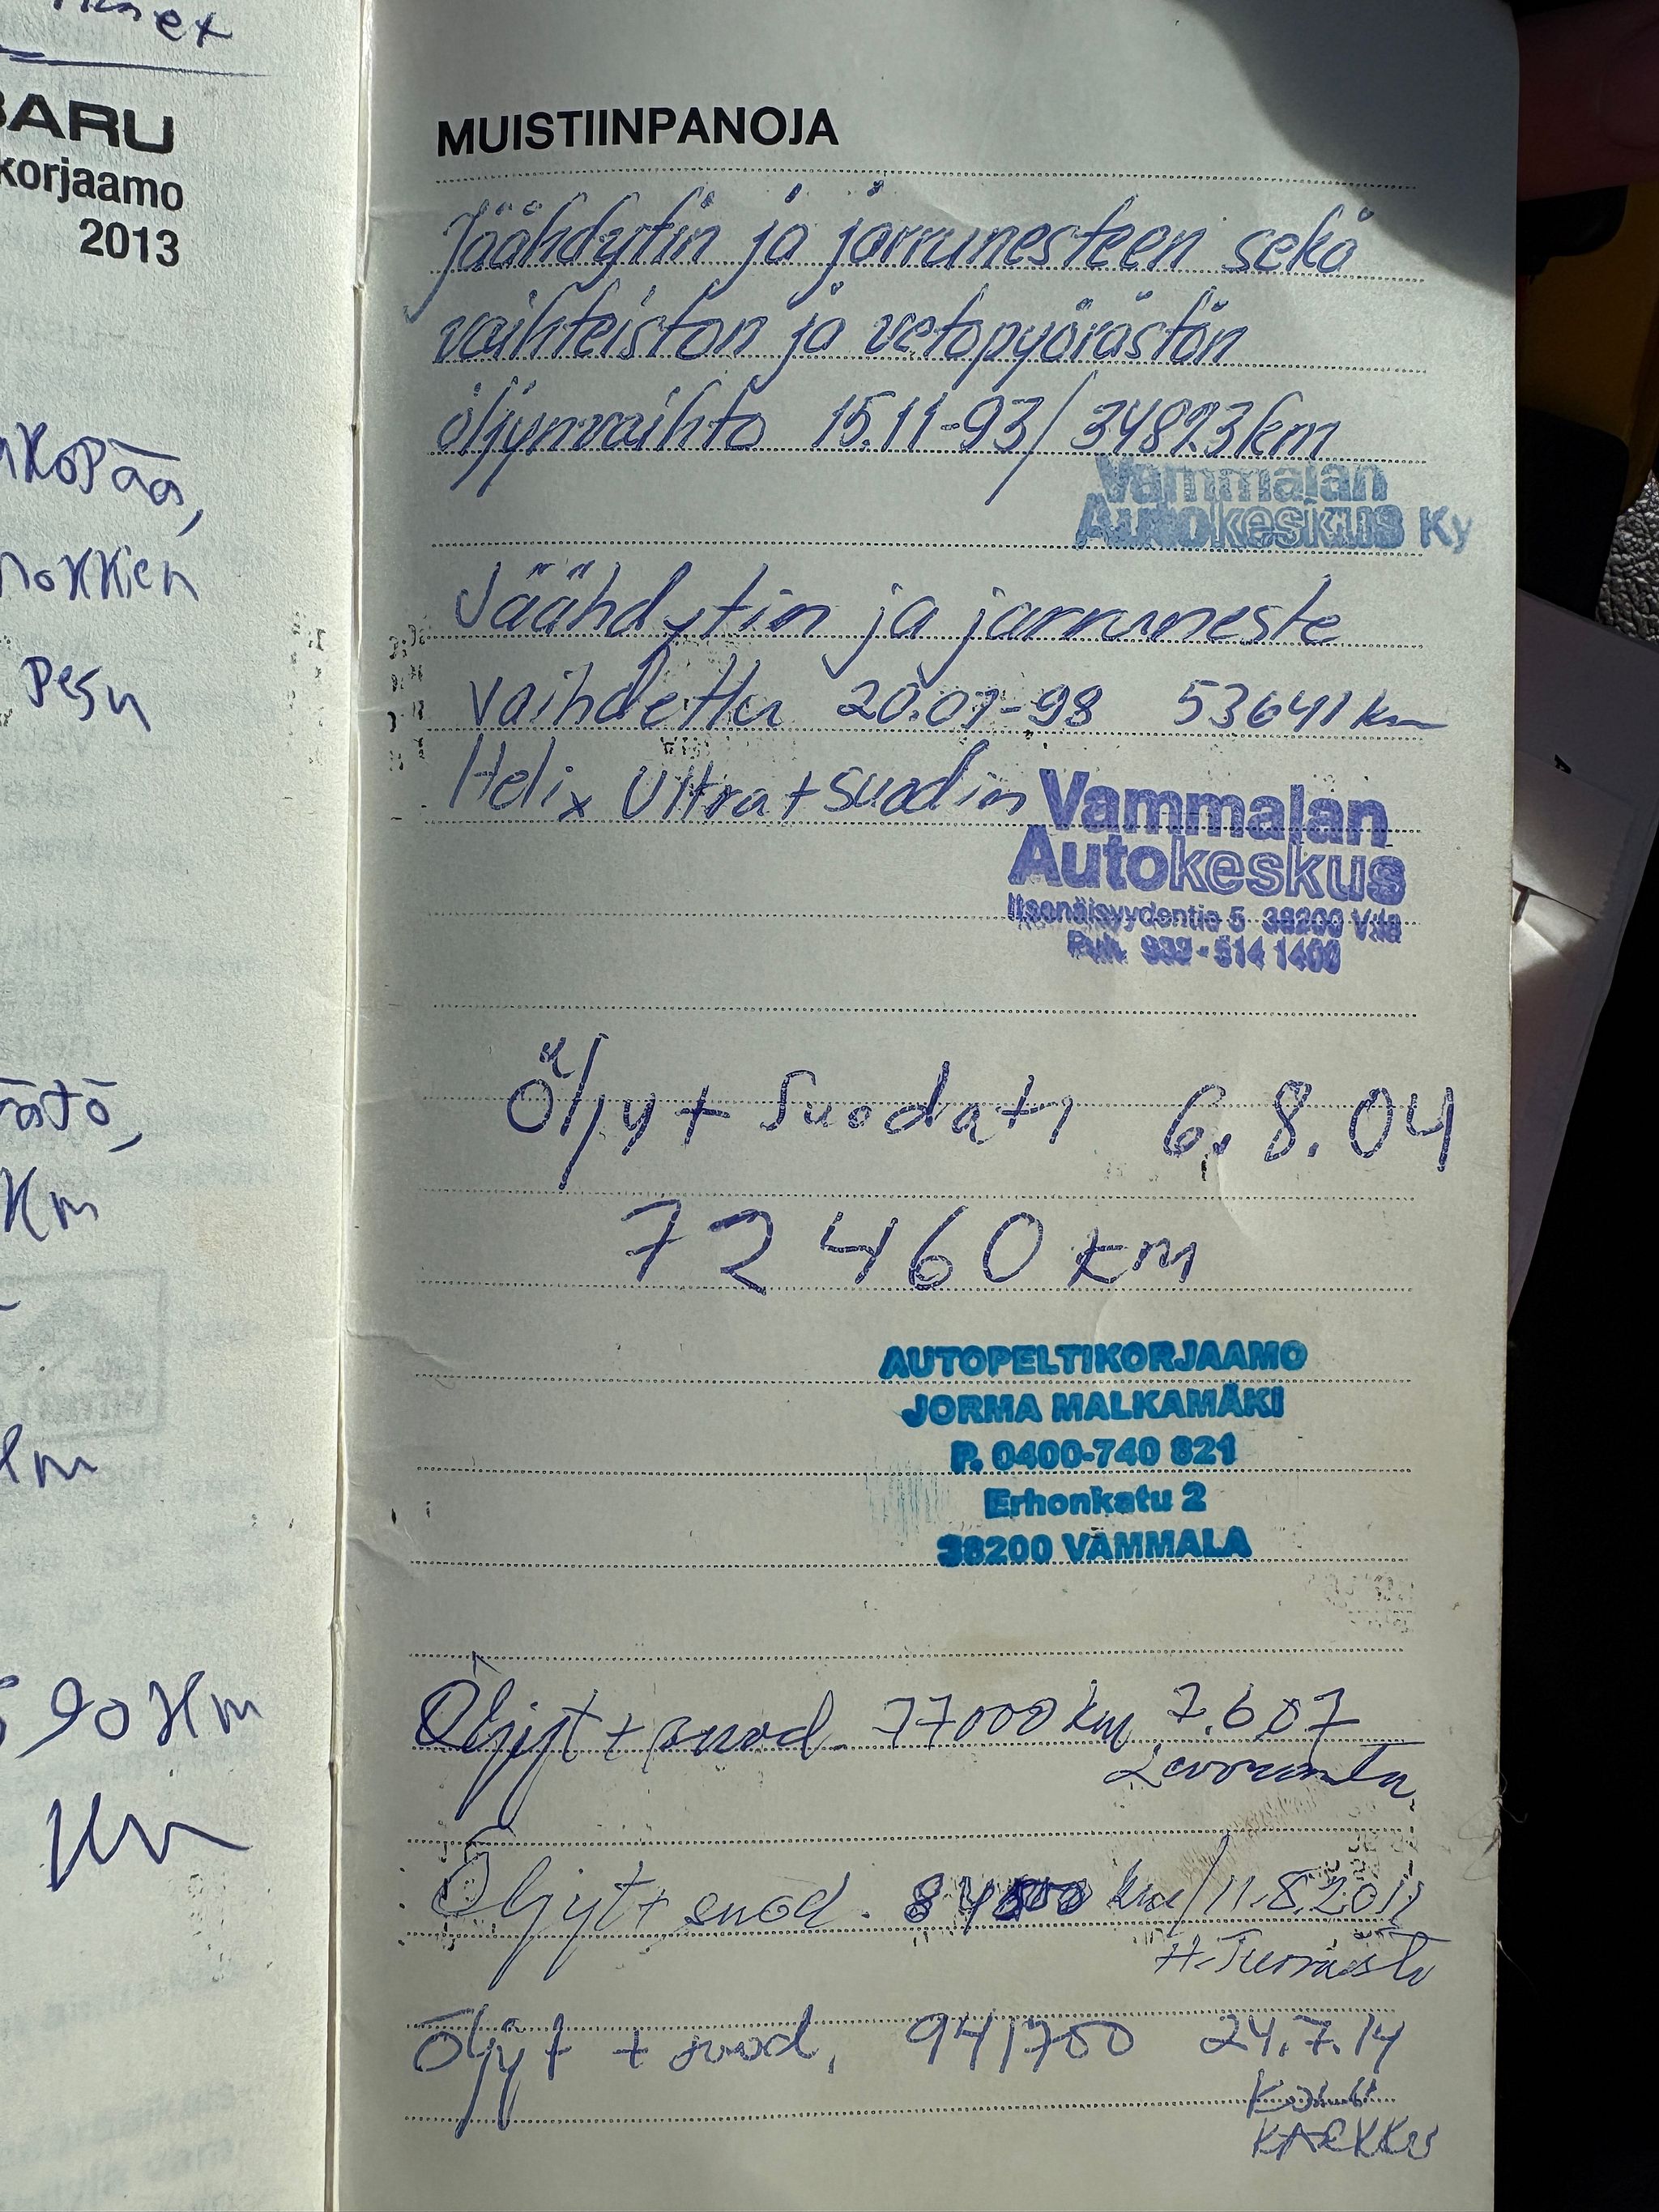 BARU
korjaamo
2013
pesu
Km
90 Km
Km
MUISTIINPANOJA
Jäähdytin ja jarrunesteen sekä
vaihteiston ja vetopyörästön
öljynvaihto 15.11-93/34823km
Vammalan
Autokeskus Ky
Jäähdytin ja jarruneste
vaihdettu 20.07-98 53641 km
Helix Ultra + suodin
Vammalan
Autokeskus
Itsenäisyydentie 5 38200 V:la
Puh. 939-514 1400
Öljy + Suodatin 6.8.04
72460 km
AUTOPELTIKORJAAMO
JORMA MALKAMÄKI
P. 0400-740 821
Erhonkatu 2
38200 VAMMALA
Öljyt + suod. 77000 km 7.607
Öljyt + suod. km/11.8.2011
Öljyt + suod, 941700 24.7.14
KARKKU